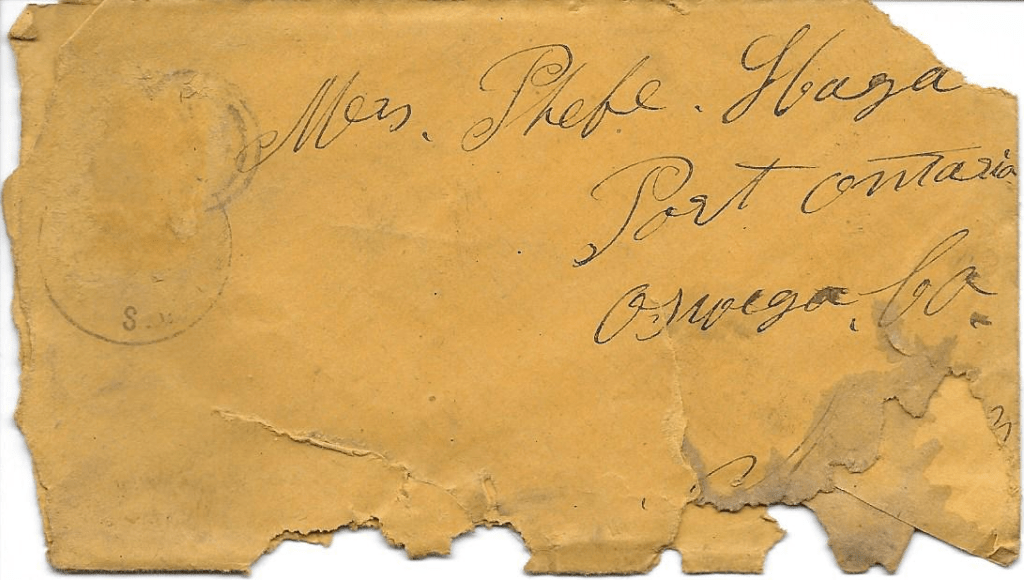 Mrs. Phebe. Haga
Port Ontario
Oswego. Co.
S.